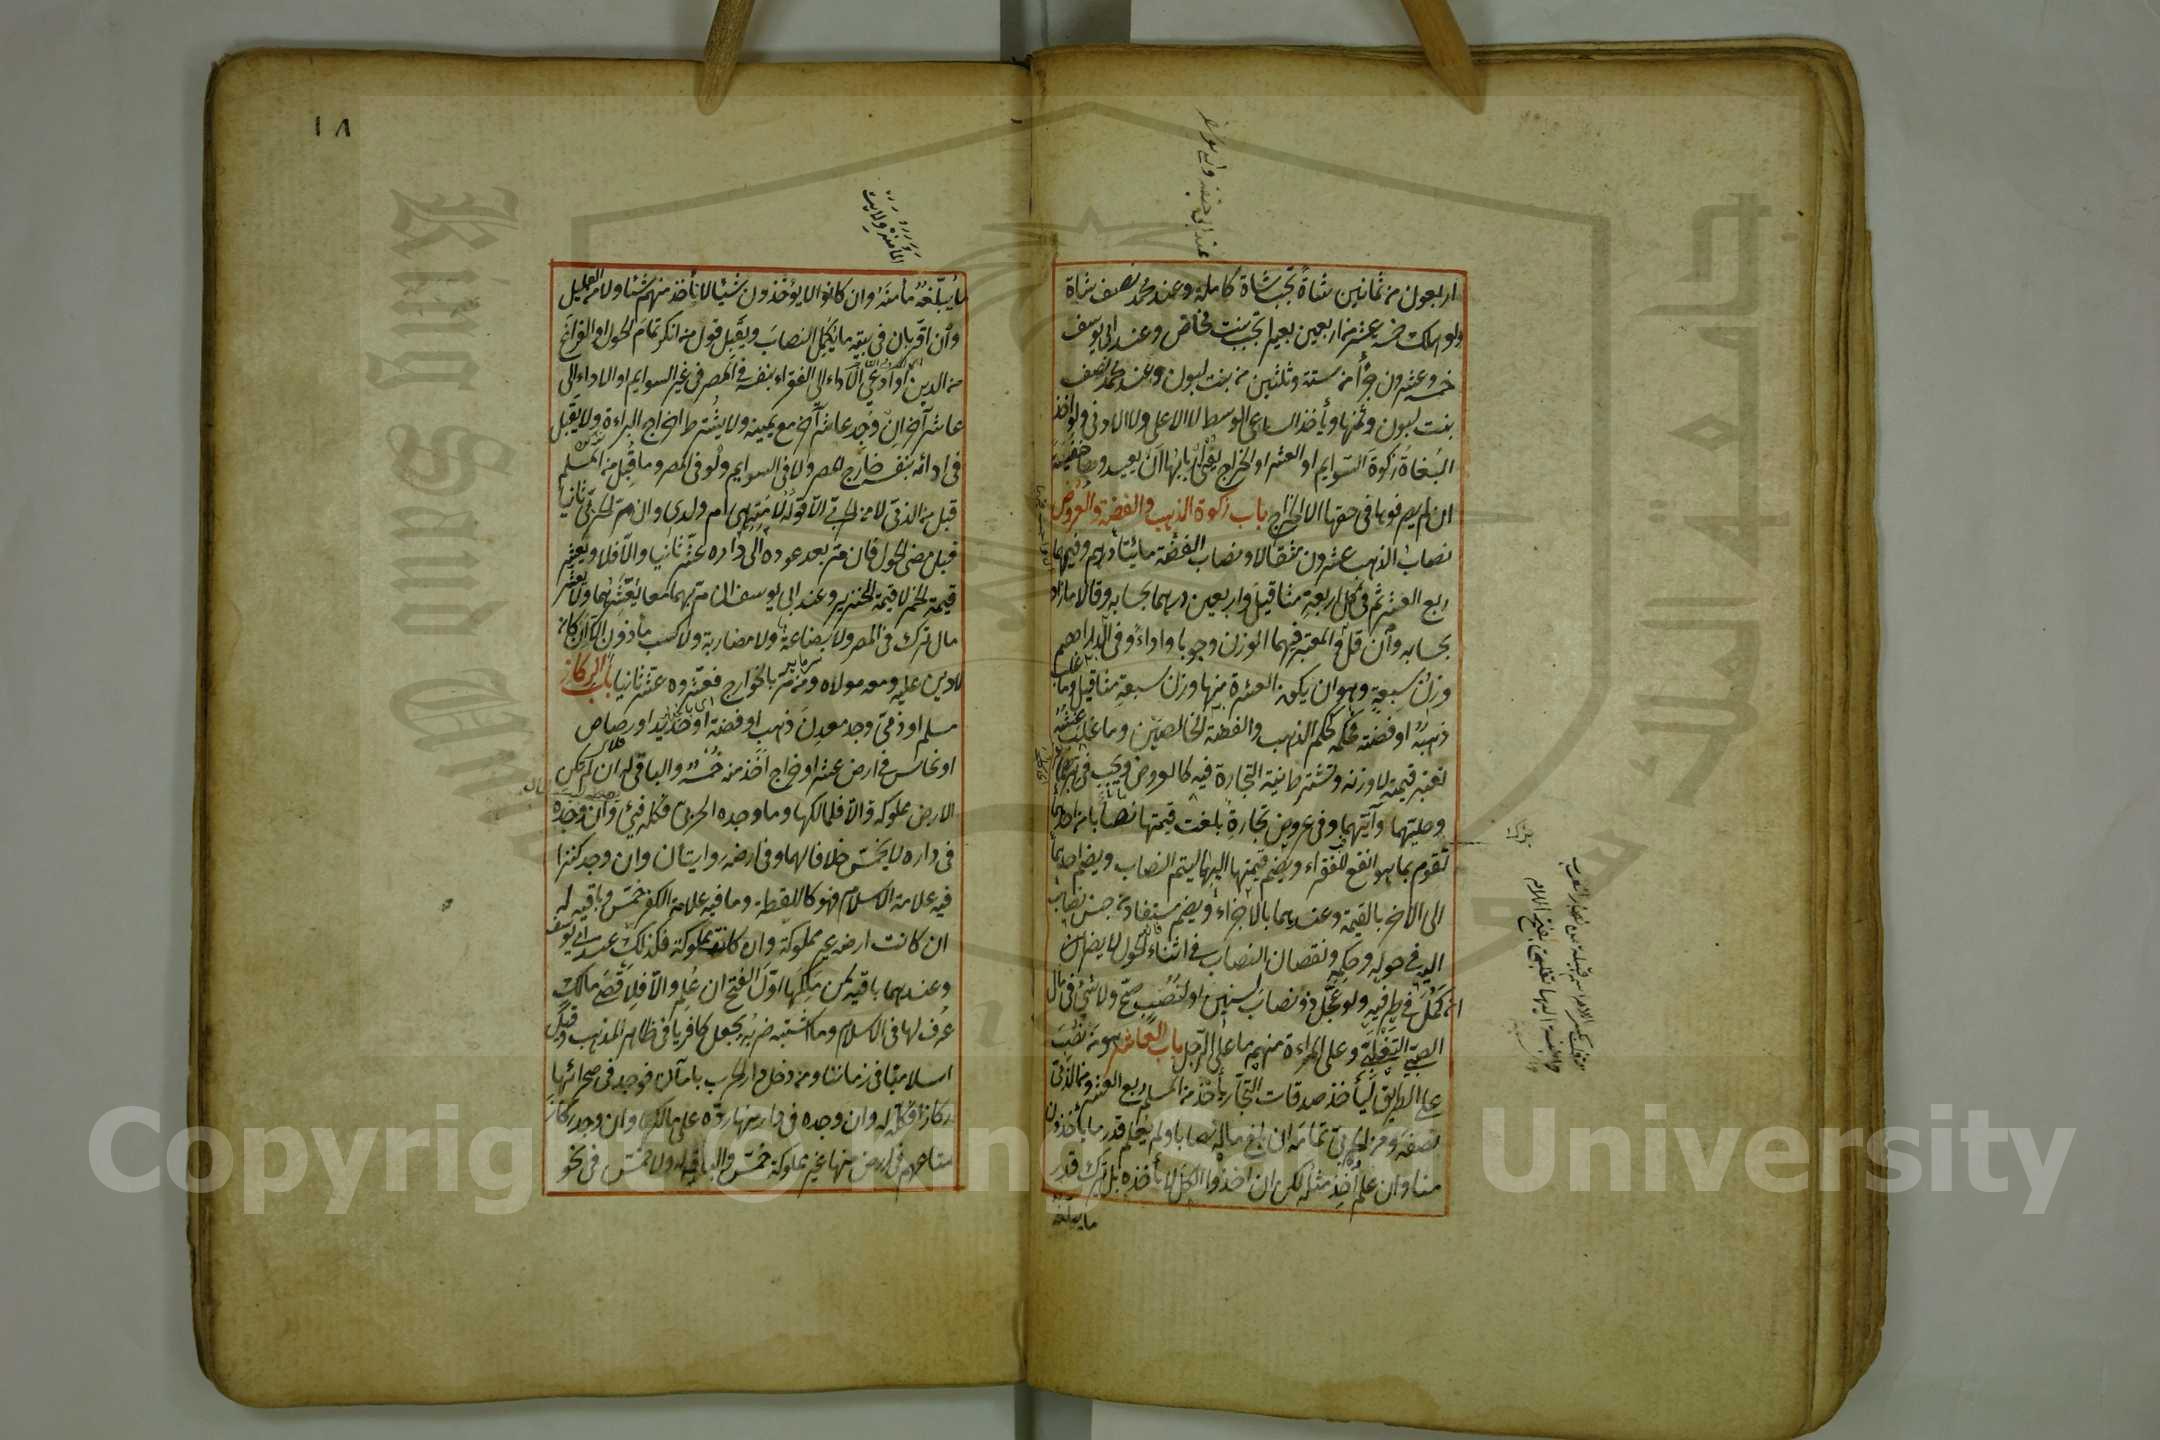 اربعون من ثمانين شاة تجب شاة كاملة وعند محمد نصف شاة
ولو هلك خمسة عشر من اربعين بعيرا تجب بنت مخاض وعند ابى يوسف
خمسة وعشرون جزأ من ستة وثلثين من بنت لبون وعند محمد نصف
بنت لبون وثمنها ويأخذ الساعى الوسط لا الاعلى ولا الادنى ولو اخذ
البغاة زكوة السوايم او العشر او الخراج يفتى اربابها ان يعيدوها خفية
ان لم يصرفوها فى حقها الا الخراج باب زكوة الذهب والفضة والعروض
نصاب الذهب عشرون مثقالا ونصاب الفضة مائتا درهم وفيهما
ربع العشر ثم فى كل اربعة مثاقيل واربعين درهما بحسابه وقالا ما زاد
بحسابه وان قل والمعتبر فيهما الوزن وجوبا واداء وفى الدراهم
وزن سبعة وهو ان يكون العشرة منها وزن سبعة مثاقيل وما غلب
ذهبه او فضته فحكمه حكم الذهب والفضة الخالصين وما غلب غشه
تعتبر قيمته لا وزنه وتشترط نية التجارة فيه كالعروض ويجب فى تبرهما
وحليتهما وآنيتهما وفى عروض تجارة بلغت قيمتها نصابا من احدهما
تقوم بما هو انفع للفقراء ويضم قيمتها اليهما ليتم النصاب ويضم احدهما
الى الآخر بالقيمة وعندهما بالاجزاء ويضم مستفاد من جنس نصاب
اليه فى حوله وحكمه ونقصان النصاب فى اثناء الحول لا يضر ان
كمل فى طرفيه ولو عجل ذو نصاب لسنين او لنصب صح ولا شئ فى مال
الصبى التغلبى وعلى المرءة منهم ما على الرجل باب العاشر هو من نصب
على الطريق ليأخذ صدقات التجار يأخذ من المسلم ربع العشر ومن الذمى
نصفه ومن الحربى تمامه ان بلغ ماله نصابا ولم يعلم قدر ما يأخذون
منا وان علم اخذ مثله لكن ان اخذوا الكل لا يأخذه بل يترك قدر
ما يبلغه
١٨
ما يبلغه مأمنه وان كانوا لا يؤخذون شيئا لا نأخذ منهم شيئا ولا من القليل
وان اقر بان فى بيته ما يكمل النصاب ويقبل قول من انكر تمام الحول او الفراغ
من الدين او ادعى الاداء الى الفقراء بنفسه فى المصر فى غير السوايم او الاداء الى
عاشر آخر ان وجد عاشر آخر مع يمينه ولا يشترط اخراج البراءة ولا يقبل
فى ادائه بنفسه خارج المصر ولا فى السوايم ولو فى المصر وما قبل من المسلم
قبل من الذمى لا من الحربى الا قوله لامته هى ام ولدى وان مر الحربى ثانيا
قبل مضى الحول فان مر بعد عوده الى داره عشر ثانيا والا فلا ويعشر
قيمة الخمر لا قيمة الخنزير وعند ابى يوسف ان مر بهما معا يعشرهما ولا يعشر
مال ترك فى المصر ولا بضاعة ولا مضاربة ولا كسب مأذون الا ان كان
لا دين عليه ومعه مولاه ومن مر بالخوارج فعشروه عشر ثانيا باب الركاز
مسلم او ذمى وجد معدن ذهب او فضة او حديد او رصاص
او نحاس فى ارض عشر او خراج اخذ منه خمسه والباقى له ان لم تكن
الارض مملوكة والا فلمالكها وما وجده الحربى فكله فيئ وان وجده
فى داره لا يخمس خلافا لهما وفى ارضه روايتان وان وجد كنزا
فيه علامة الاسلام فهو كاللقطة وما فيه علامة الكفر خمس وباقيه له
ان كانت ارضه غير مملوكة وان كانت مملوكة فكذلك عند ابى يوسف
وعندهما باقيه لمن ملكها اول الفتح ان علم والا فلاقصى مالك
عرف لها فى الاسلام وما اشتبه ضربه يجعل كافريا فى ظاهر المذهب وقيل
اسلاميا فى زماننا ومن دخل دار الحرب بامان فوجد فى صحرائها
ركازا فكله له وان وجده فى دار منها رده على مالكها وان وجد ركاز
متاعهم فى ارض منها غير مملوكة خمس والباقى له ولا خمس فى نحو
Copyright © King Saud University